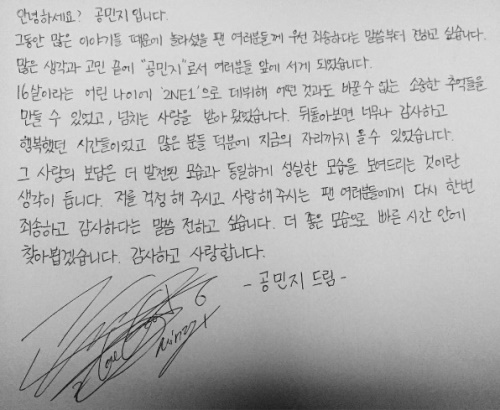 안녕하세요? 공민지입니다.
그동안 많은 이야기들 때문에 놀라셨을 팬 여러분들께 우선 죄송하다는 말씀부터 전하고 싶습니다.
많은 생각과 고민 끝에 "공민지"로서 여러분들 앞에 서게 되었습니다.
16살이라는 어린 나이에 '2NE1'으로 데뷔해 어떤 것과도 바꿀 수 없는 소중한 추억들을
만들 수 있었고, 넘치는 사랑을 받아 왔었습니다. 뒤돌아보면 너무나 감사하고
행복했던 시간들이었고 많은 분들 덕분에 지금의 자리까지 올 수 있었습니다.
그 사랑의 보답은 더 발전된 모습과 동일하게 성실한 모습을 보여드리는 것이란
생각이 듭니다. 저를 걱정해 주시고 사랑해주시는 팬 여러분들에게 다시 한번
죄송하고 감사하다는 말씀 전하고 싶습니다. 더 좋은 모습으로 빠른 시간 안에
찾아뵙겠습니다. 감사하고 사랑합니다.
- 공민지 드림 -